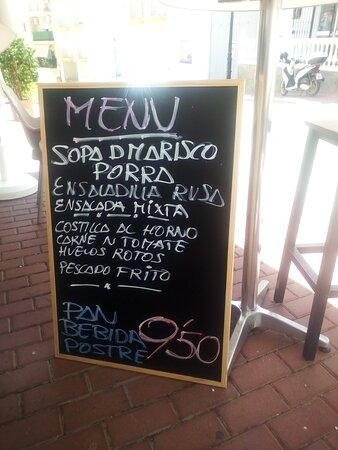 MENU
SOPA D MARISCO
PORRA
ENSALADILLA RUSA
ENSALADA MIXTA
COSTILLA AL HORNO
CARNE N TOMATE
HUEVOS ROTOS
PESCADO FRITO
PAN
BEBIDA
POSTRE
9'50